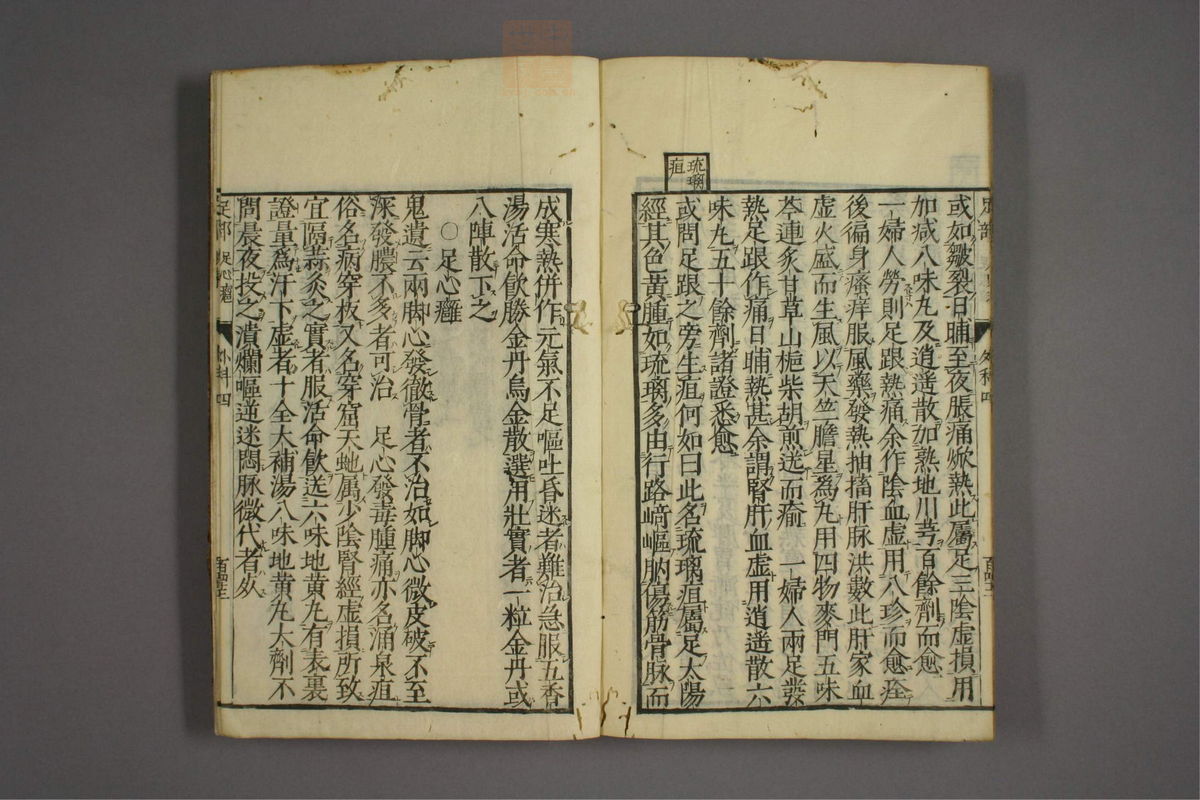 琉璃
疽
或如皺裂日晡至夜脹痛焮熱此屬足三陰虛損用
加减八味丸及逍遙散加熟地川芎百餘劑而愈
一婦人勞則足跟熱痛余作陰血虛用八珍而愈痊
後徧身瘙痒服風藥發熱抽搐肝脉洪數此肝家血
虛火盛而生風以天竺膽星為丸用四物麥門五味
芩連炙甘草山梔柴胡煎送而瘉　一婦人兩足發
熱足跟作痛日晡熱甚余謂腎肝血虛用逍遙散六
味丸五十餘劑諸證悉愈
或問足跟之旁生疽何如曰此名琉璃疽屬足太陽
經其色黄腫如琉璃多由行路崎嶇肭傷筋骨脉而
成寒熱併作元氣不足嘔吐昏迷者難治急服五香
湯活命飲勝金丹烏金散選用壯實者一粒金丹或
八陣散下之
○足心癰
鬼遺云兩脚心發徹骨者不治如脚心微皮破不至
深發膿不多者可治　足心發毒腫痛亦名涌泉疽
俗名病穿板又名穿窟天虵属少陰腎經虛損所致
宜隔蒜灸之實者服活命飲送六味地黄丸有表裏
證量為汗下虛者十全大補湯八味地黄丸大劑不
問晨夜投之潰爛嘔逆迷悶脉微代者㱔
足部
足心癰
外科四